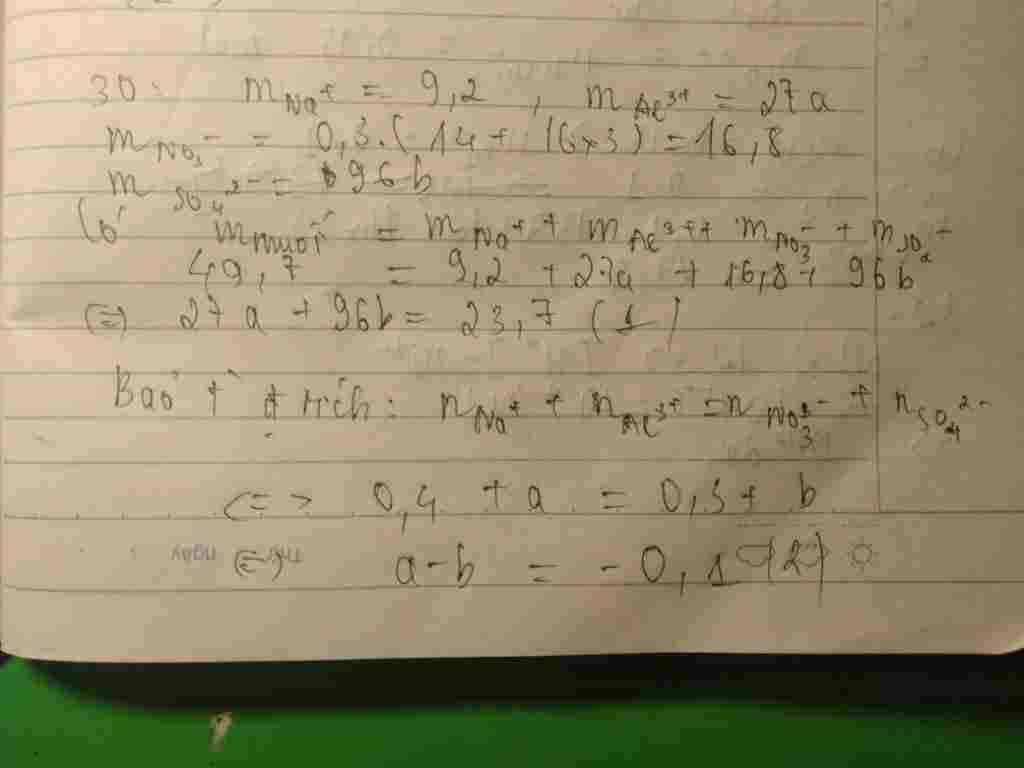 30: m Na⁺ = 9,2 , m Al³⁺ = 27a
m NO₃⁻ = 0,3.(14 + 16×3) = 16,8
m SO₄²⁻ = 96b
Có m muối = m Na⁺ + m Al³⁺ + m NO₃⁻ + m SO₄²⁻
49,7 = 9,2 + 27a + 16,8 + 96b
(=) 27a + 96b = 23,7 (1)
Bảo t đ tích: n Na⁺ + n Al³⁺ = n NO₃⁻ + n SO₄²⁻
<=> 0,4 + a = 0,3 + b
(=) a - b = - 0,1 (2)